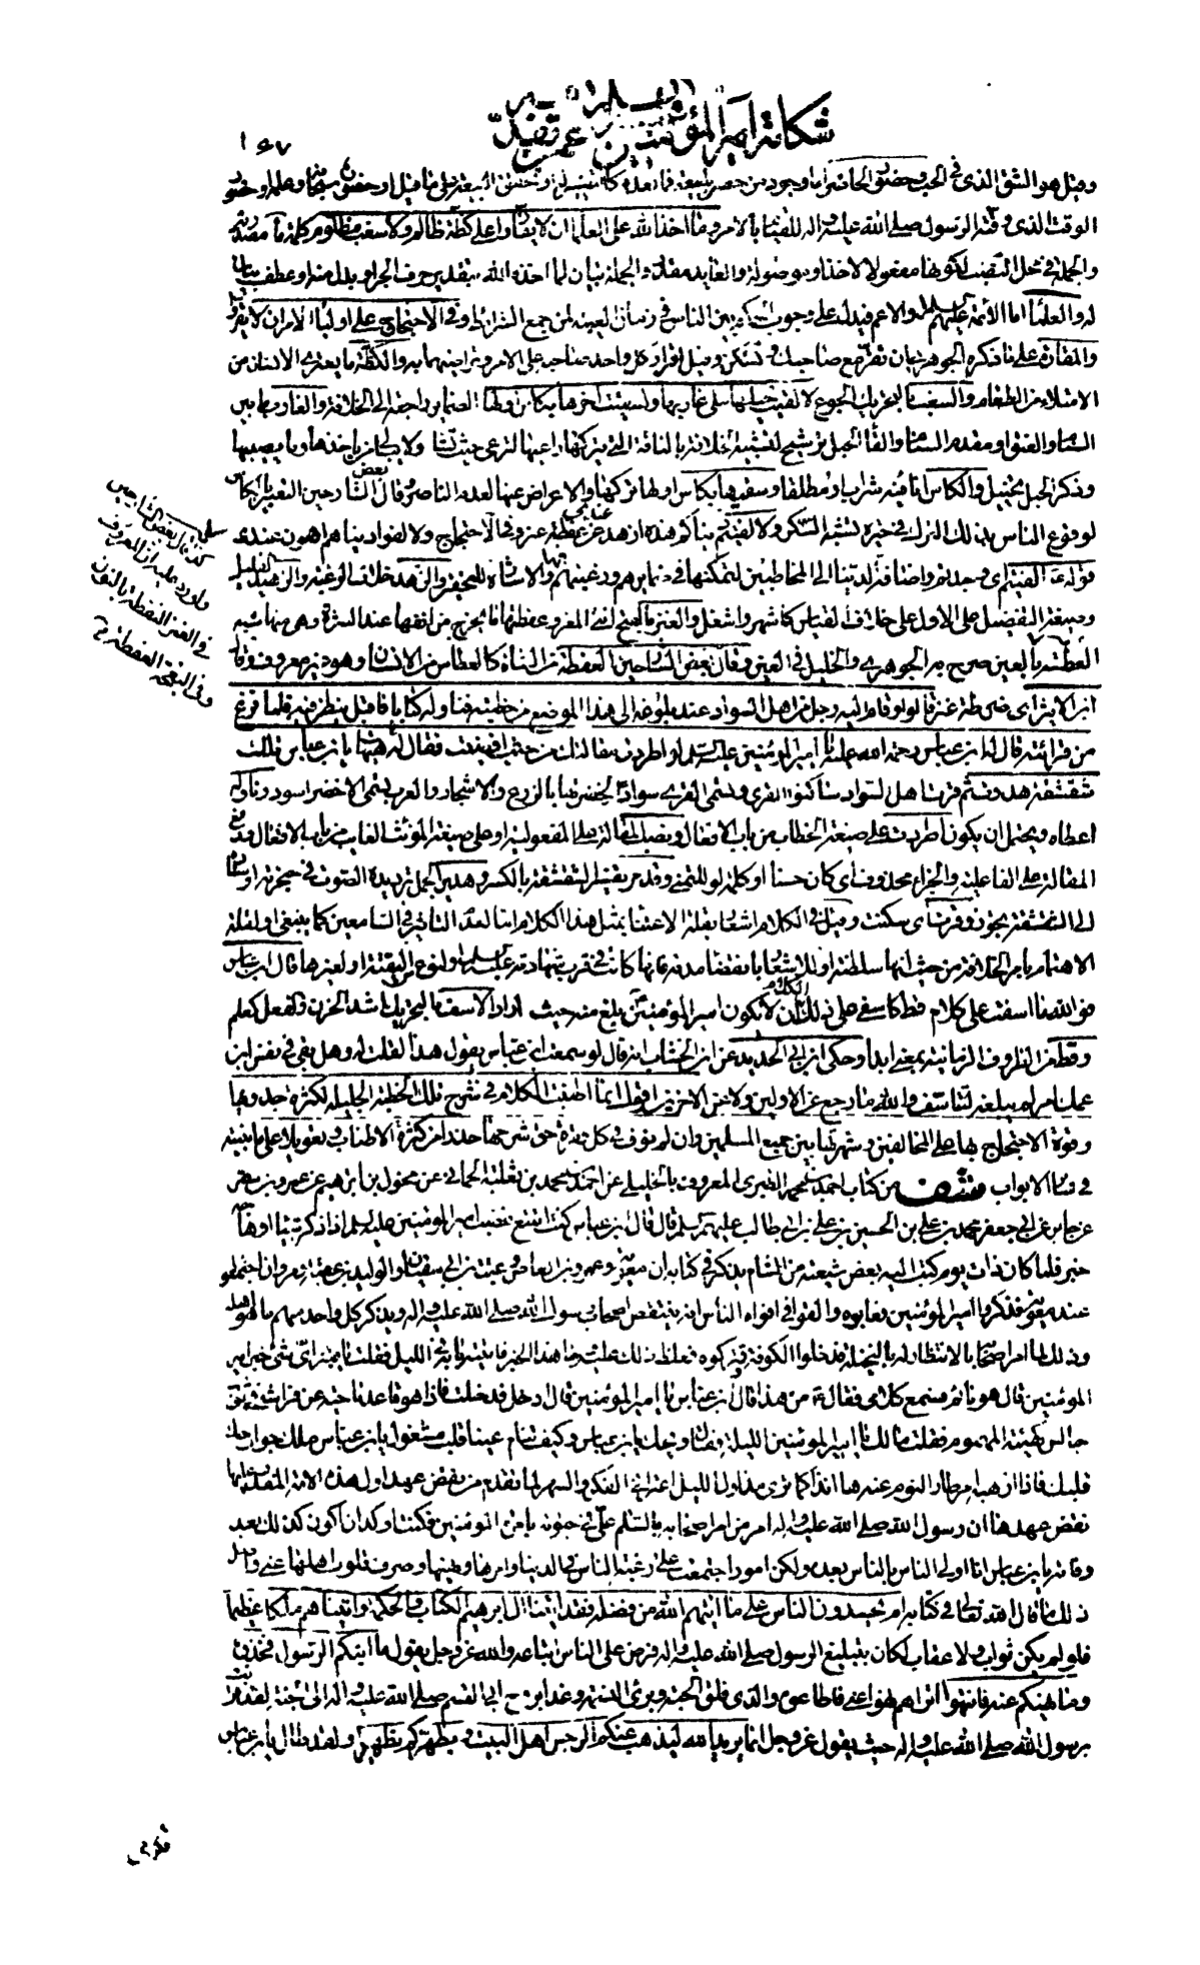 شكاية أمير المؤمنين عمن تقدمه
١٥٧
وقيل هو الشق الذي في الجبل وحضور الحاضر اما وجود من حضر للبيعة فما بعده كالتفسير له أو تحقق البيعة على ما قيل أو حضوره سبحانه وعلمه أو حضور
الوقت الذي وقته الرسول صلى الله عليه وآله للقيام بالأمر وما أخذ الله على العلماء ان لا يقاروا على كظة ظالم ولا سغب مظلوم كلمة ما مصدرية
والجملة في محل النصب لكونها مفعولا لأخذ أو موصولة والعائد مقدر والجملة بيان لما أخذه الله بتقدير حرف الجر أو بدل منه أو عطف بيان
له والعلماء اما الأئمة عليهم السلام أو الأعم فيدل على وجوب الحكم بين الناس في زمان الغيبة لمن جمع الشرائط وفي الاحتجاج على أولياء الأمر ان لا يقروا
والمقارة على ما ذكره الجوهري ان تقر مع صاحبك وتسكن وقيل اقرار كل واحد صاحبه على الأمر وتراضيهما به والكظة ما يعتري الانسان من
الامتلاء من الطعام والسغب بالتحريك الجوع لألقيت حبلها على غاربها ولسقيت آخرها بكأس أولها الضماير راجعة إلى الخلافة والغارب ما بين
السنام والعنق أو مقدم السنام والقاء الحبل ترشيح لتشبيه الخلافة بالناقة التي يتركها راعيها لترعى حيث تشاء ولا يبالي من يأخذها وما يصيبها
وذكر الحبل تخييل والكأس اناء فيه شراب أو مطلقا وسقيها بكأس أولها تركها والاعراض عنها لعدم الناصر وقال بعض الشارحين التعبير بالكأس
لوقوع الناس بذلك الترك في حيرة تشبه السكر ولألفيتم دنياكم هذه أزهد عندي من عفطة عنز وفي الاحتجاج ولألفوا دنياهم أهون عندي
قوله ع ألفيتم أي وجدتم وإضافة الدنيا إلى المخاطبين لتمكنها في ضمايرهم ورغبتهم فيها والإشارة للتحقير والزهد خلاف الرغبة والزهيد القليل
وصيغة التفضيل على الأول على خلاف القياس كأشهر وأشغل والعنز بالفتح أنثى المعز وعفطتها ما يخرج من أنفها عند النثرة وهي منها شبه
العطسة بالعين صرح به الجوهري والخليل في العين وقال بعض الشارحين العفطة من الشاة كالعطاس من الانسان وهو غير معروف وقال
ابن الأثير أي ضرطة عنز قالوا وقام إليه رجل من أهل السواد عند بلوغه إلى هذا الموضع من خطبته فناوله كتابا فأقبل ينظر فيه فلما فرغ
من قرائته قال له ابن عباس رحمة الله عليه يا أمير المؤمنين عليك السلام لو اطردت مقالتك من حيث أفضيت فقال له هيهات يا ابن عباس تلك
شقشقة هدرت ثم قرت أهل السواد ساكنوا القرى وتسمى القرى سوادا لخضرتها بالزرع والأشجار والعرب تسمي الأخضر أسود وناوله
أعطاه ويحتمل ان يكون اطردت على صيغة الخطاب من باب الافعال ونصب المقالة على المفعولية أو على صيغة المؤنث الغايب من باب الافتعال ورفع
المقالة على الفاعلية والجزاء محذوف أي كان حسنا أو كلمة لو للتمني وقد مر تفسير الشقشقة بالكسر وهدير الجمل ترديده الصوت في حنجرته واسناده
إلى الشقشقة تجوز وقرت أي سكنت وقيل في الكلام اشعار بقلة الاعتناء بمثل هذا الكلام اما لعدم التأثير في السامعين كما ينبغي أو لقلة
الاهتمام بأمر الخلافة من حيث انها سلطنة أو للاشعار بانقضاء مدته فإنها كانت في قرب شهادته عليه السلام أو لنوع من التقية أو لغيرها قال ابن عباس
فوالله ما أسفت على كلام قط كأسفي على ذلك الكلام أن لا يكون أمير المؤمنين بلغ منه حيث أراد الأسف بالتحريك أشد الحزن والفعل كعلم
وقط من الظروف الزمانية بمعنى أبدا وحكى ابن أبي الحديد عن ابن الخشاب انه قال لو سمعت ابن عباس يقول هذا لقلت له وهل بقي في نفس ابن
عمك أمر لم يبلغه لتتأسف والله ما رجع عن الأولين ولا عن الآخرين أقول انما أطنبت الكلام في شرح تلك الخطبة الجليلة لكثرة جدويها
وقوة الاحتجاج بها على المخالفين وشهرتها بين جميع المسلمين وان لم نوف في كل فقرة حق شرحها حذرا من كثرة الاطناب وتعويلا على ما بينته
في سائر الأبواب شف من كتاب أحمد بن محمد الطبري المعروف بالخليلي عن أحمد بن محمد بن ثعلبة الحماني عن مخول بن إبراهيم عن عمرو بن شمر
عن جابر عن أبي جعفر محمد بن علي بن الحسين بن علي بن أبي طالب عليهم السلام قال قال ابن عباس كنت أتتبع غضب أمير المؤمنين عليه السلام إذا ذكر شيئا أو هاجه
خبر فلما كان ذات يوم كتب إليه بعض شيعته من الشام يذكر في كتابه ان معوية وعمرو بن العاص وعتبة بن أبي سفيان والوليد بن عقبة ومروان اجتمعوا
عند معوية فذكروا أمير المؤمنين فعابوه وألقوا في أفواه الناس انه ينتقص أصحاب رسول الله صلى الله عليه وآله ويذكر كل واحد منهم ما هو أهله
وذلك لما أمر أصحابه بالانتظار له بالنخيلة فدخلوا الكوفة وتركوه فغلظ ذلك عليه وجاء هذا الخبر فأتيت بابه في الليل فقلت يا قنبر أي شئ خبر أمير
المؤمنين قال هو نائم فسمع كلامي فقال ع من هذا قال ابن عباس يا أمير المؤمنين قال ادخل فدخلت فإذا هو قاعد ناحية عن فراشه في ثوب
جالس كهيئة المهموم فقلت ما لك يا أمير المؤمنين الليلة فقال ويحك يا ابن عباس وكيف تنام عينا قلب مشغول يا ابن عباس ملك جوارحك
قلبك فإذا أرهبه أمر طار النوم عنه ها أنا ذا كما ترى مذ أول الليل اعتراني الفكر والسهر لما تقدم من نقض عهد أول هذه الأمة المقدر عليها
نقض عهدها ان رسول الله صلى الله عليه وآله أمر من أمر من أصحابه بالسلام علي في حياته بإمرة المؤمنين فكنت أوكد ان أكون كذلك بعد
وفاته يا ابن عباس أنا أولى الناس بالناس بعده ولكن أمور اجتمعت على رغبة الناس في الدنيا وأمرها ونهيها وصرف قلوب أهلها عني وأصل
ذلك ما قال الله تعالى في كتابه أم يحسدون الناس على ما آتيهم الله من فضله فقد آتينا آل إبرهيم الكتاب والحكمة وآتيناهم ملكا عظيما
فلو لم يكن ثواب ولا عقاب لكان بتبليغ الرسول صلى الله عليه وآله فرض على الناس اتباعه والله عز وجل يقول ما آتيكم الرسول فخذوه
وما نهيكم عنه فانتهوا أتراهم نهوا عني فأطاعوه والذي فلق الحبة وبرئ النسمة وغدا بروح أبي القسم صلى الله عليه وآله إلى الجنة لقد قرنت
برسول الله صلى الله عليه وآله حيث يقول عز وجل انما يريد الله ليذهب عنكم الرجس أهل البيت ويطهركم تطهيرا ولقد طال يا ابن عباس
فكري
كذا قال بعض الشارحين
وأورد عليه ان المعروف
في العنز النفطة بالنون
وفي النعجة العفطة